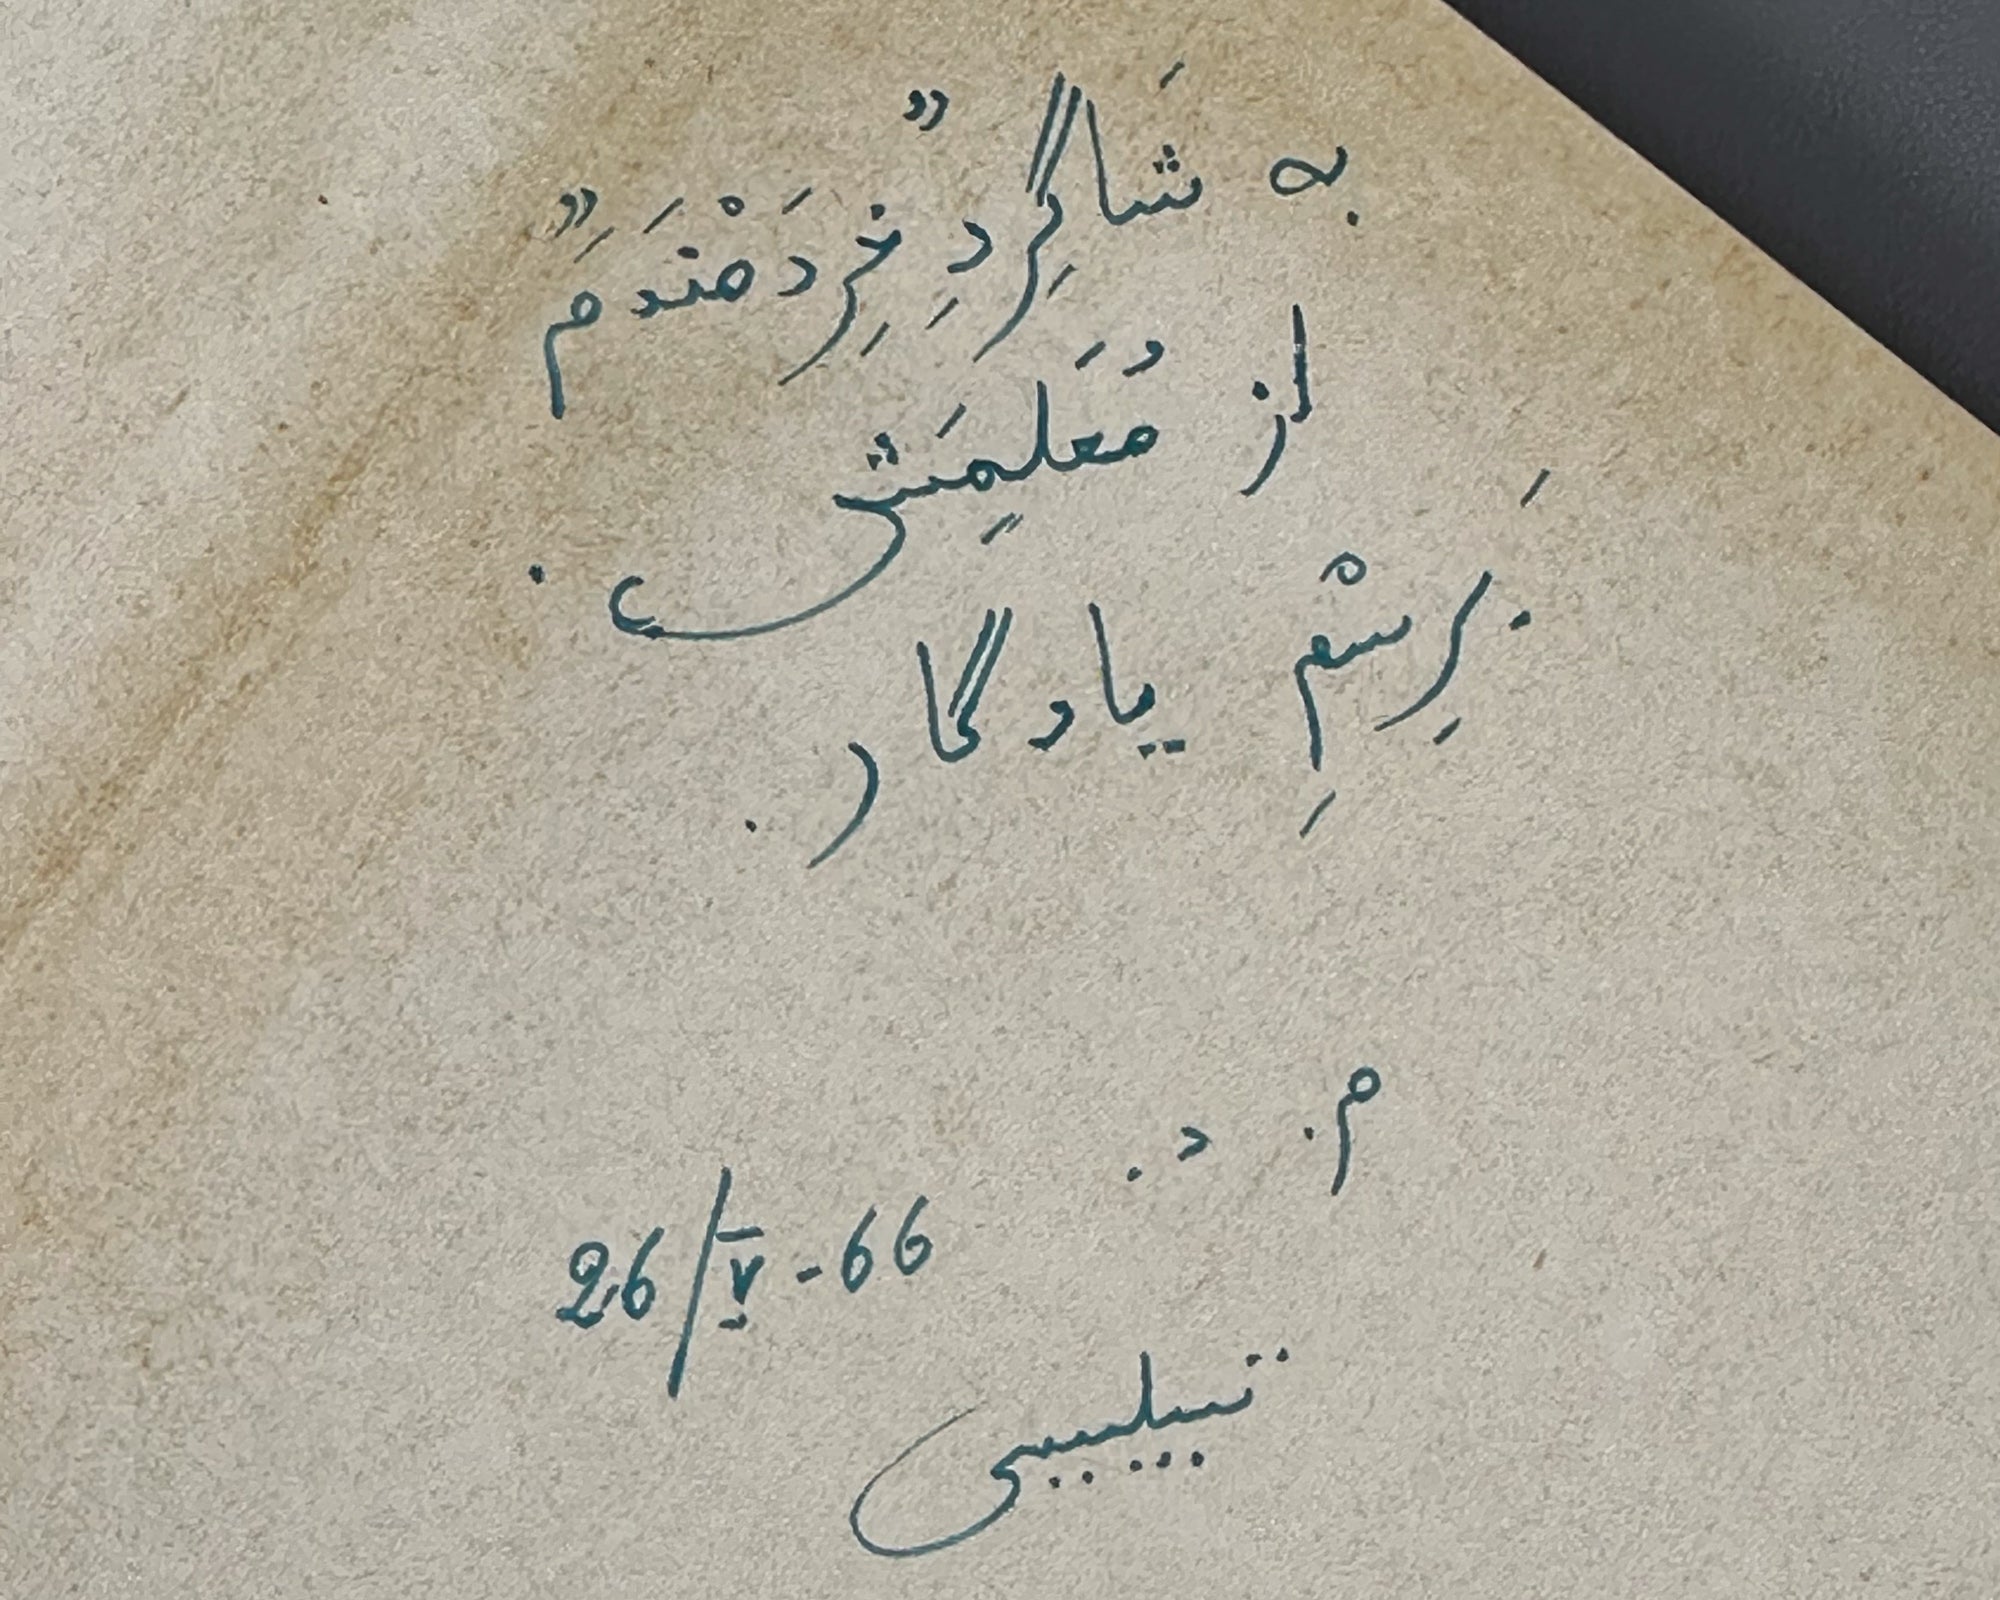 به شَاگِردِ „خِرَدمْنَدَمِ”
از مُعَلِمَش .
بَرِسْمِ یادگار .
م. د.
26/V-66
تبیلیسی